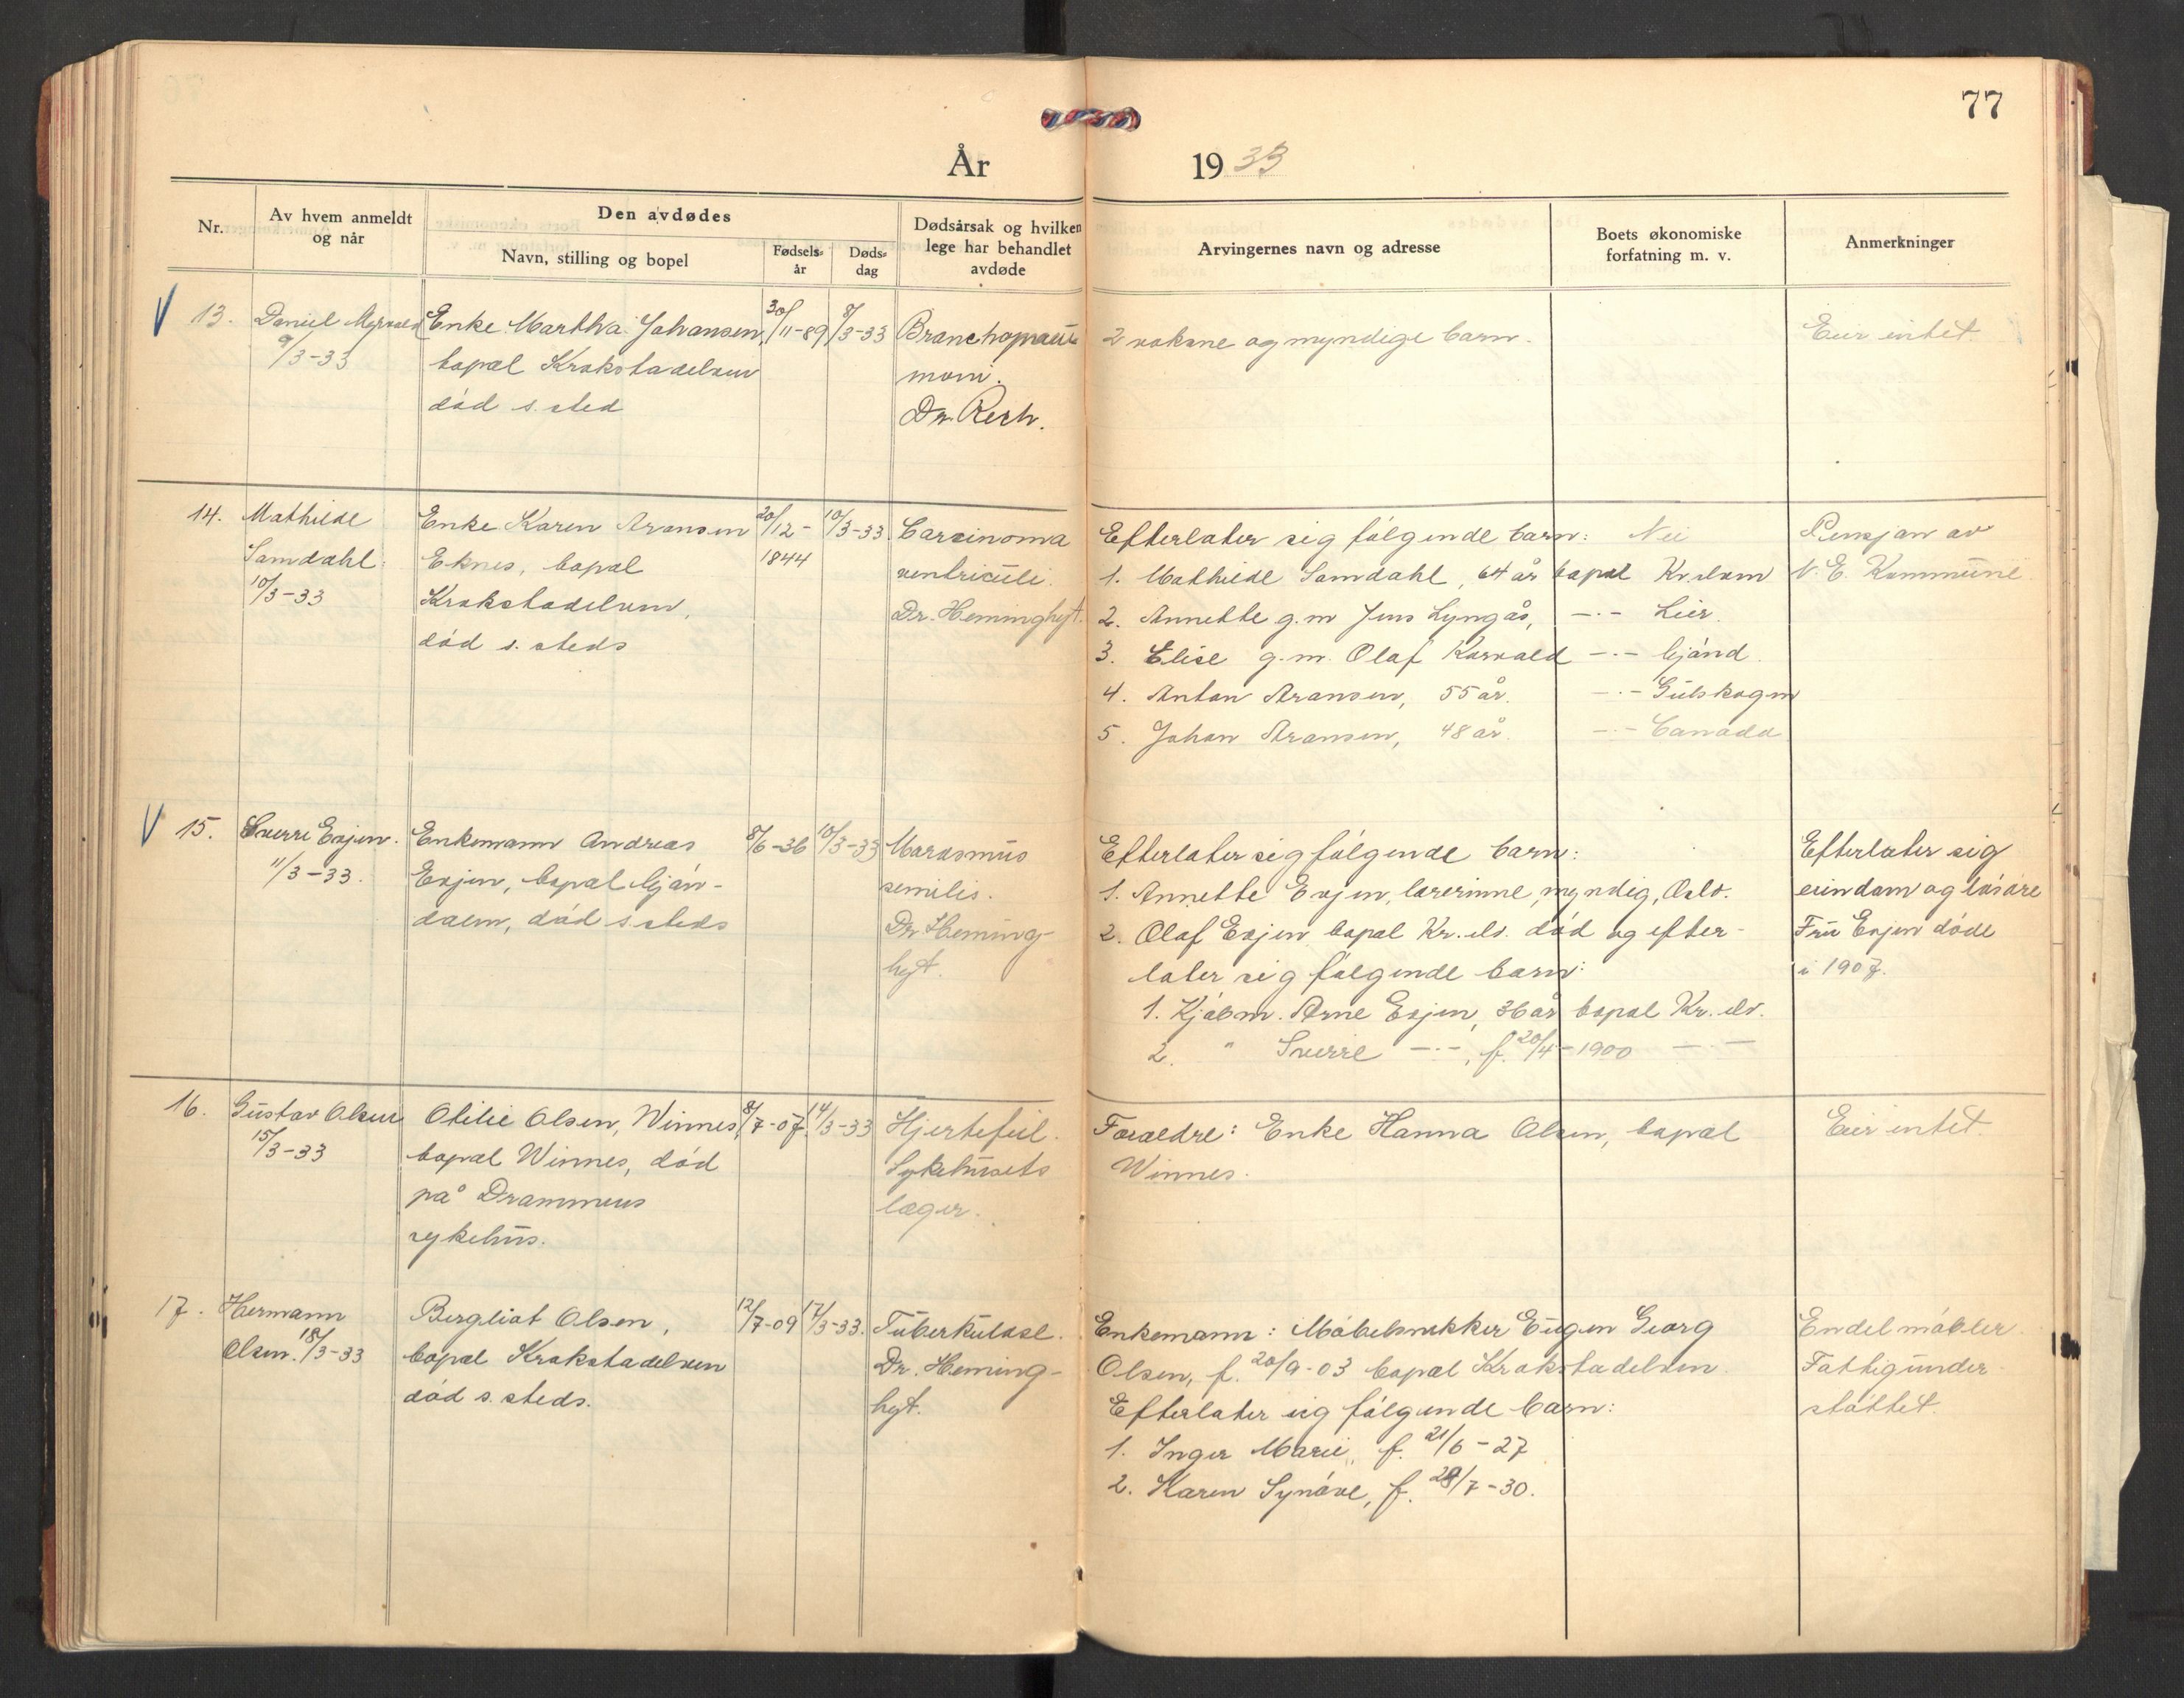 77
År 1933
Nr.
Av hvem anmeldt
og når
Den avdødes
Navn, stilling og bopel
Fødsels-
år
Døds-
dag
Dødsårsak og hvilken
lege har behandlet
avdøde
Arvingernes navn og adresse
Boets økonomiske
forfatning m. v.
Anmerkninger
V 13.
Daniel Myrvold
9/3-33
Enke Martha Johansen,
bopæl Krokstadelven
død s. sted
30/11-89
8/3-33
Bronchopneu
moni.
Dr.
2 voksne og myndige barn.
Eier intet.
14.
Mathilde
Samdahl.
10/3-33
Enke Karen Aronsen
Eknes, bopæl
Krokstadelven,
død s. steds
20/12-
1844
10/3-33
Carcinoma
ventriculi.
Dr. Heminghyt.
Efterlater sig følgende barn: Nei
1. Mathilde Samdahl, 64 år bopæl Kr.elven
2. Annette g.m Jens Lyngås, -·- Lier.
3. Elise g.m. Olaf Korvald -·- Mjønd.
4. Anton Aronsen, 55 år. -·- Gulskogen
5. Johan Aronsen, 48 år. -·- Canada
Pensjon av
N. E. Kommune.
V 15.
Sverre Evjen.
11/3-33.
Enkemann Andreas
Evjen, bopæl Mjøn-
dalen, død s. steds
8/6-36
10/3-33
Marasmus
senilis.
Dr. Heming-
hyt.
Efterlater sig følgende barn:
1. Annette Evjen, lærerinne, myndig, Oslo.
2. Olaf Evjen bopæl Kr.elv. død og efter-
later sig følgende barn:
1. Kjøbm. Arne Evjen, 36 år bopæl Kr. elv.
2. " Sverre -·-, f. 20/4-1900 -·-
Efterlater sig
eiendom og løsøre
Fru Evjen døde
i 1907.
16.
Gustav Olsen
15/3-33
Otilie Olsen, Winnes,
bopæl Winnes, død
på Drammens
sykehus.
8/7-07.
14/3-33
Hjertefeil.
Sykehusets
læger.
Foreldre: Enke Hanna Olsen, bopæl
Winnes.
Eier intet.
17.
Hermann
Olsen. 18/3-33
Bergliot Olsen,
bopæl Krokstadelven
død s. steds.
12/7-09
17/3-33.
Tuberkulose.
Dr. Heming-
hyt.
Enkemann: Møbelsnekker Eugen Georg
Olsen, f. 20/9-03 bopæl Krokstadelven.
Efterlater sig følgende barn:
1. Inger Marie, f. 21/6-27
2. Karen Synøve, f. 29/7-30.
Endel møbler.
Fattigunder-
støttet.